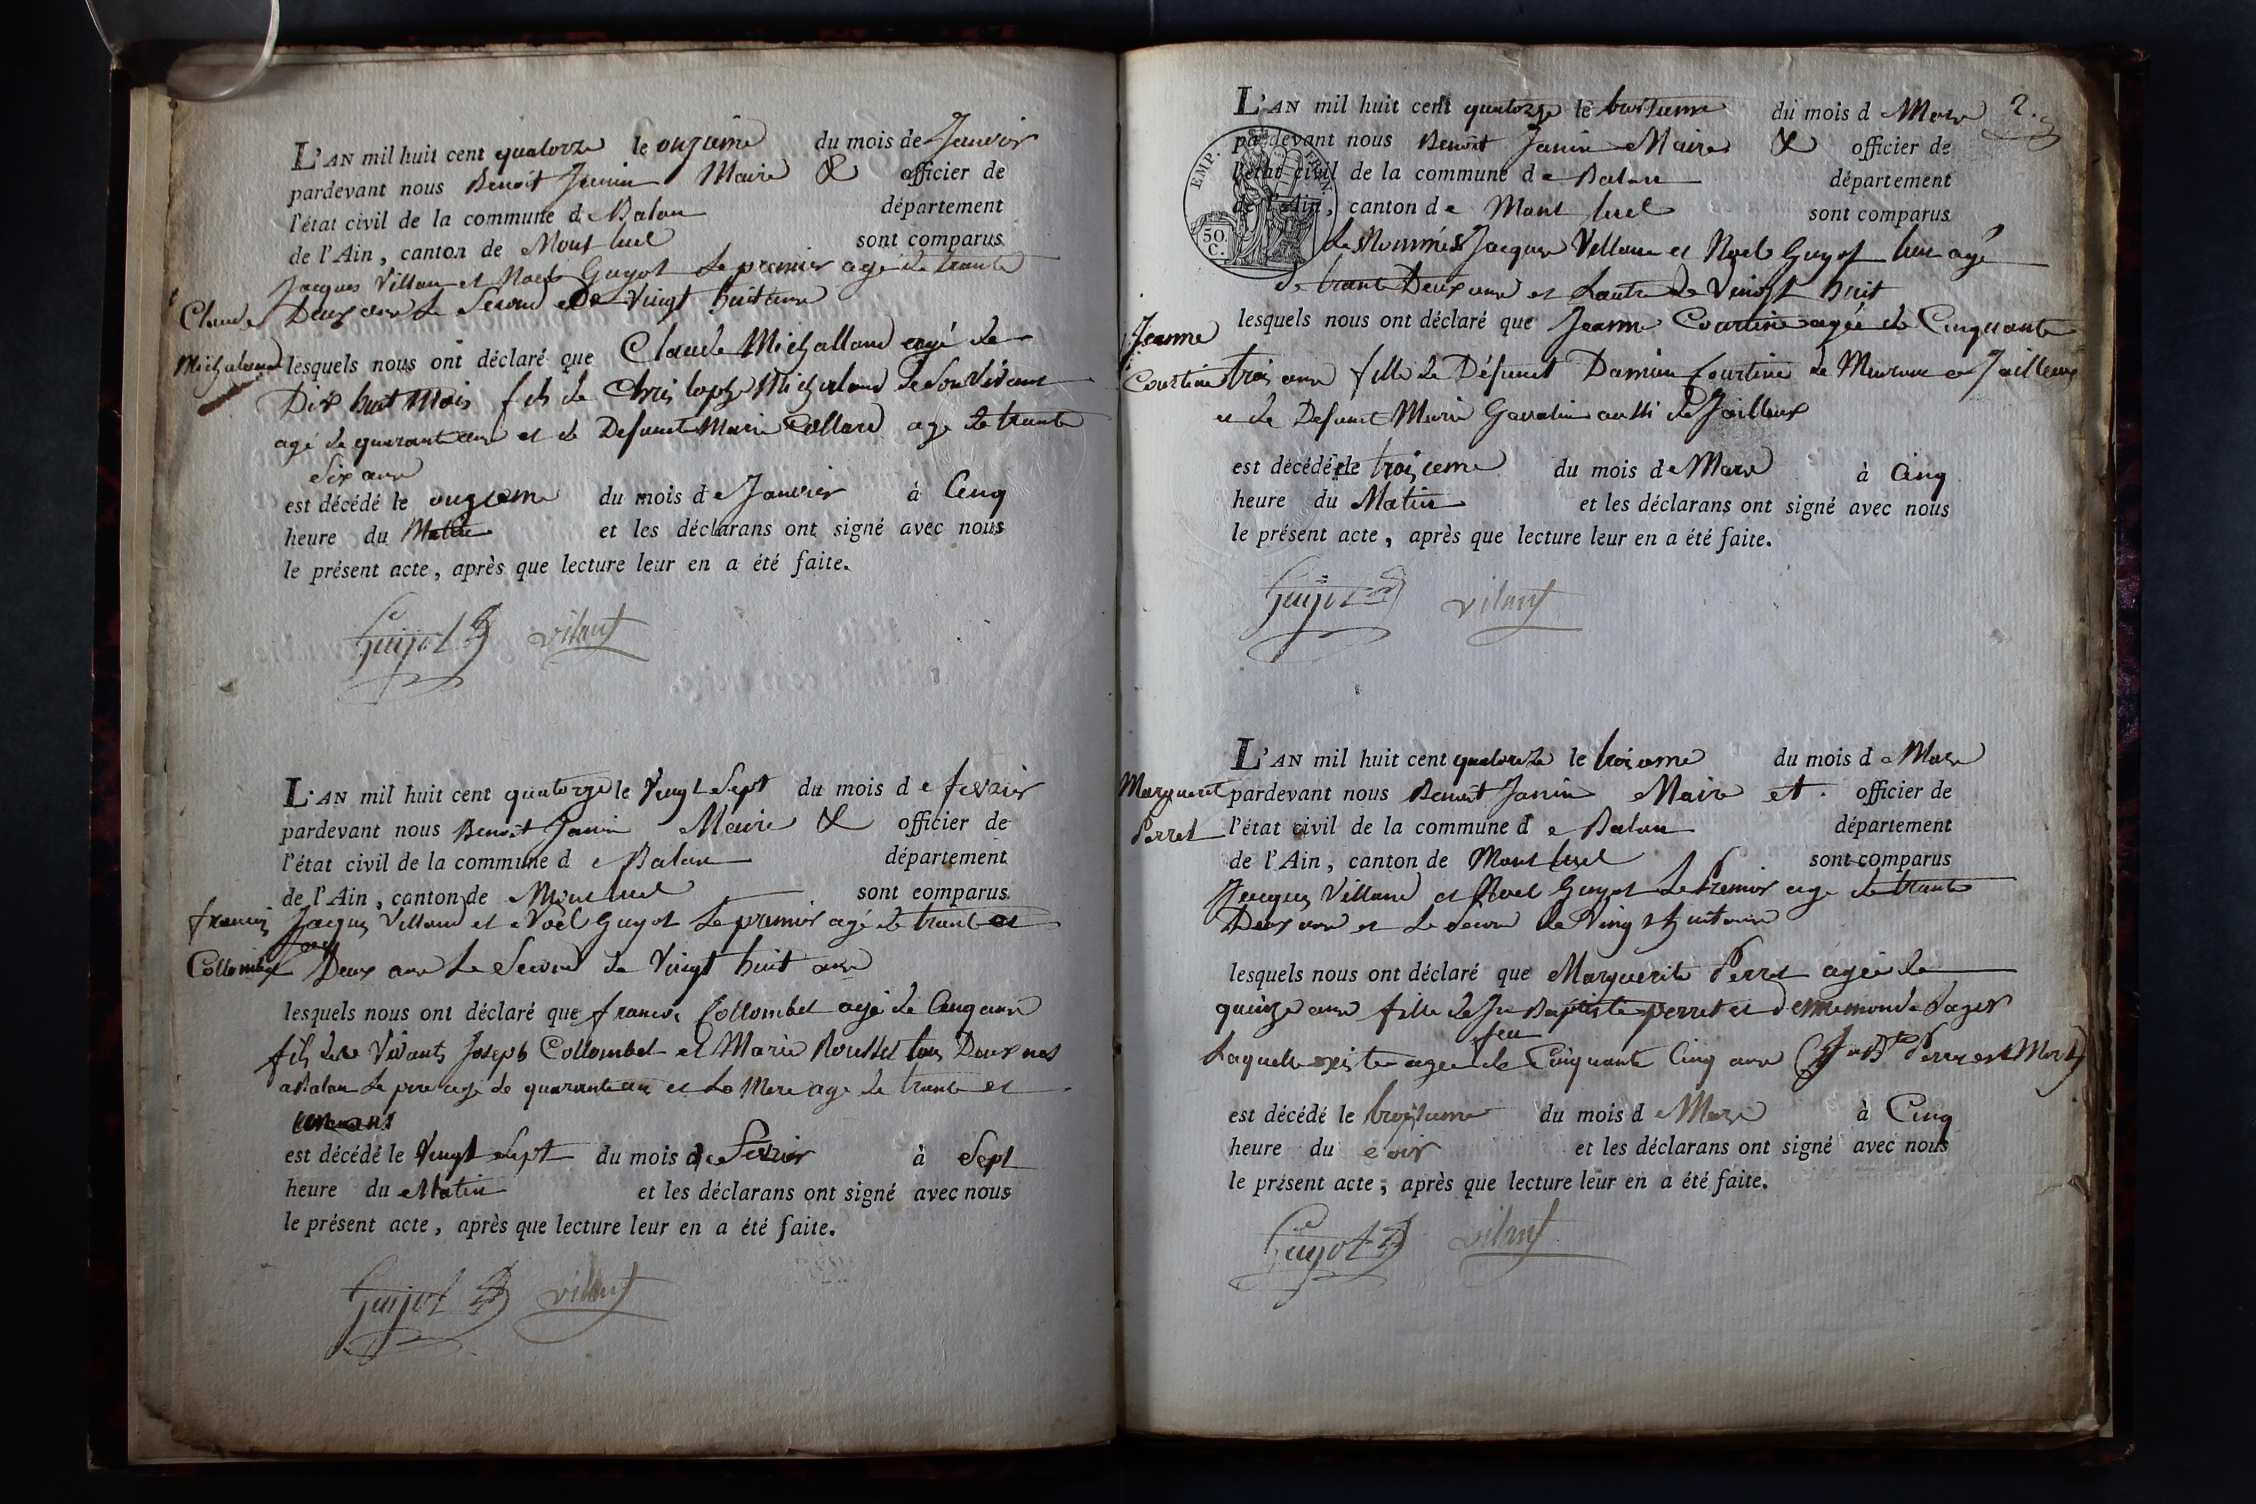 L'AN mil huit cent quatorze le onzieme du mois de Janvier
pardevant nous Benoit Janin Maire & officier de
l'état civil de la commune de Balan département
de l'Ain, canton de Mont luel sont comparus
Jacques Villand et Noel Guyot Le premier agé de trante
Deux ans Le Second De Vingt huit ans
Claude
Michaland
lesquels nous ont déclaré que Claude Michalland agé de
Dix huit Mois fils de Christophe Michaland
agé de quarante ans et de Defunct Marie Collard age de trante
Six ans
est décédé le onzieme du mois de Janvier à Cinq
heure du Matin et les déclarans ont signé avec nous
le présent acte, après que lecture leur en a été faite.
Guyot vilant
L'AN mil huit cent quatorze le Vingt Sept du mois de fevrier
pardevant nous Benoit Janin Maire & officier de
l'état civil de la commune de Balan département
de l'Ain, canton de Mont luel sont comparus
francois
Collombet
Jacques Villand et Noël Guyot Le premier agé de trante et
Deux ans Le Second de Vingt huit ans
lesquels nous ont déclaré que francois Collombet agé de Cinq ans
fils des Vivants Joseph Collombet et Marie Rousset tous Deux nes
a Balan Le pere age de quarante an et La Mere age de trante et
est décédé le Vingt Sept du mois de Fevrier à Sept
heure du Matin et les déclarans ont signé avec nous
le présent acte, après que lecture leur en a été faite.
Guyot vilant
2.
L'AN mil huit cent quatorze le troisieme du mois de Mars
pardevant nous Benoit Janin Maire & officier de
l'état civil de la commune de Balan département
de l'Ain, canton de Mont luel sont comparus
EMP. FRAN.
50 C.
Les Nommés Jacques Villand et Noel Guyot lun agé
de trante Deux ans et Lautre de Vingt huit
Jeanne
Courtine
lesquels nous ont déclaré que Jeanne Courtine agée de Cinquante
trois ans fille de Défunct Damien Courtine de Jailleux
et de Defunct Marie Gavalin aussi de Jailleux
est décédé le troisieme du mois de Mars à Cinq
heure du Matin et les déclarans ont signé avec nous
le présent acte, après que lecture leur en a été faite.
Guyot vilant
L'AN mil huit cent quatorze le troisieme du mois de Mars
Marguerit
Perret
pardevant nous Benoit Janin Maire et officier de
l'état civil de la commune de Balan département
de l'Ain, canton de Mont luel sont comparus
Jacques Villand et Noel Guyot Le Premier age de trante
Deux ans et Le Second de Vingt huit ans
lesquels nous ont déclaré que Marguerite Perret agée de
quinze ans fille de feu Jn Baptiste perret et
Laquelle existe agee de Cinquante Cinq ans (Jn Bte Perret est Mort)
est décédé le troisieme du mois de Mars à Cinq
heure du soir et les déclarans ont signé avec nous
le présent acte, après que lecture leur en a été faite.
Guyot vilant